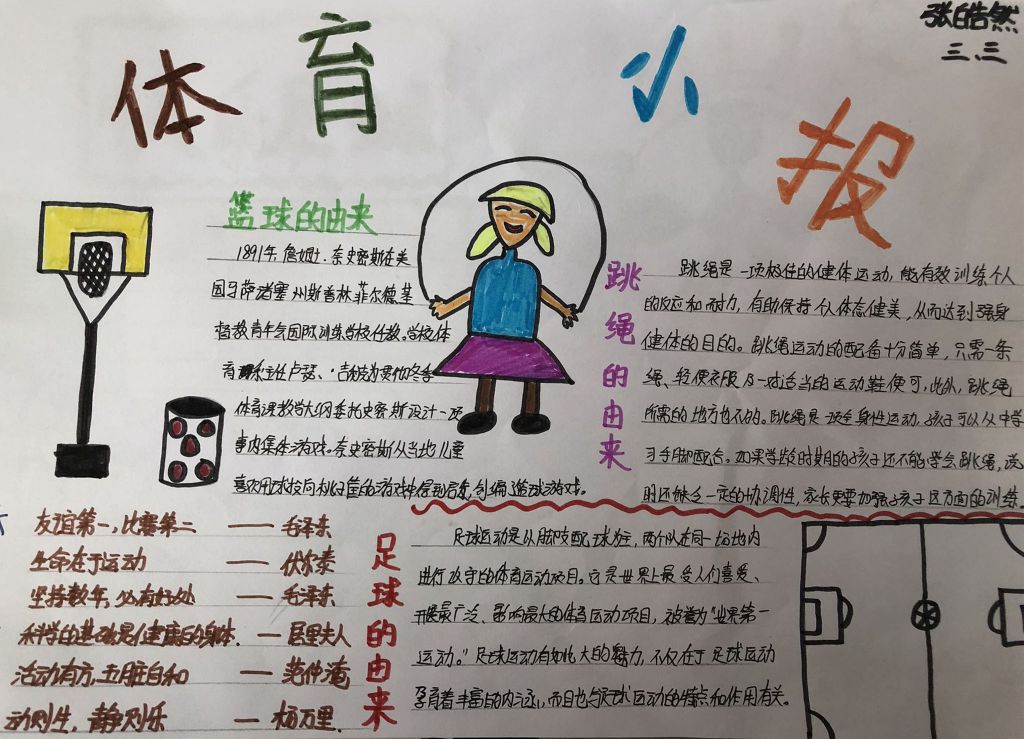 体育小报
张皓然
三、三
篮球的由来
1891年,詹姆士.奈史密斯在美
国马萨诸塞州斯普林菲尔德基
督教青年会国际训练学校任教。学校体
育系主任卢瑟、·古利克为贯彻冬季
体育课教学大纲委托史密斯设计一项
室内集体游戏。奈史密斯从当地儿童
喜欢用球投向桃子筐的游戏中得到启发,创编篮球游戏。
跳绳的由来
跳绳是一项极佳的健体运动,能有效训练个人
的反应和耐力,有助保持个人体态健美,从而达到强身
健体的目的。跳绳运动的配备十分简单,只需一条
绳、轻便衣服及一对适当的运动鞋便可,此外,跳绳
所需的地方也不大。跳绳是一项全身性运动,孩子可以从中学
习手脚配合。如果学龄时期的孩子还不能学会跳绳,说
明还缺乏一定的协调性,家长更要加强孩子这方面的训练。
友谊第一,比赛第二 —— 毛泽东
生命在于运动 —— 伏尔泰
坚持数年,必有好处 —— 毛泽东
科学的基础是健康的身体. — 居里夫人
活动有方,五脏自和 — 范仲淹
动则生,静则乐 — 杨万里.
足球的由来
足球运动是以脚支配球为主,两个队在同一场地内
进行攻守的体育运动项目。它是世界上最受人们喜爱、
开展最广泛、影响最大的体育运动项目,被誉为"世界第一
运动。"足球运动有如此大的魅力,不仅在于足球运动
孕育着丰富的内涵,而且也与足球运动的特点和作用有关。